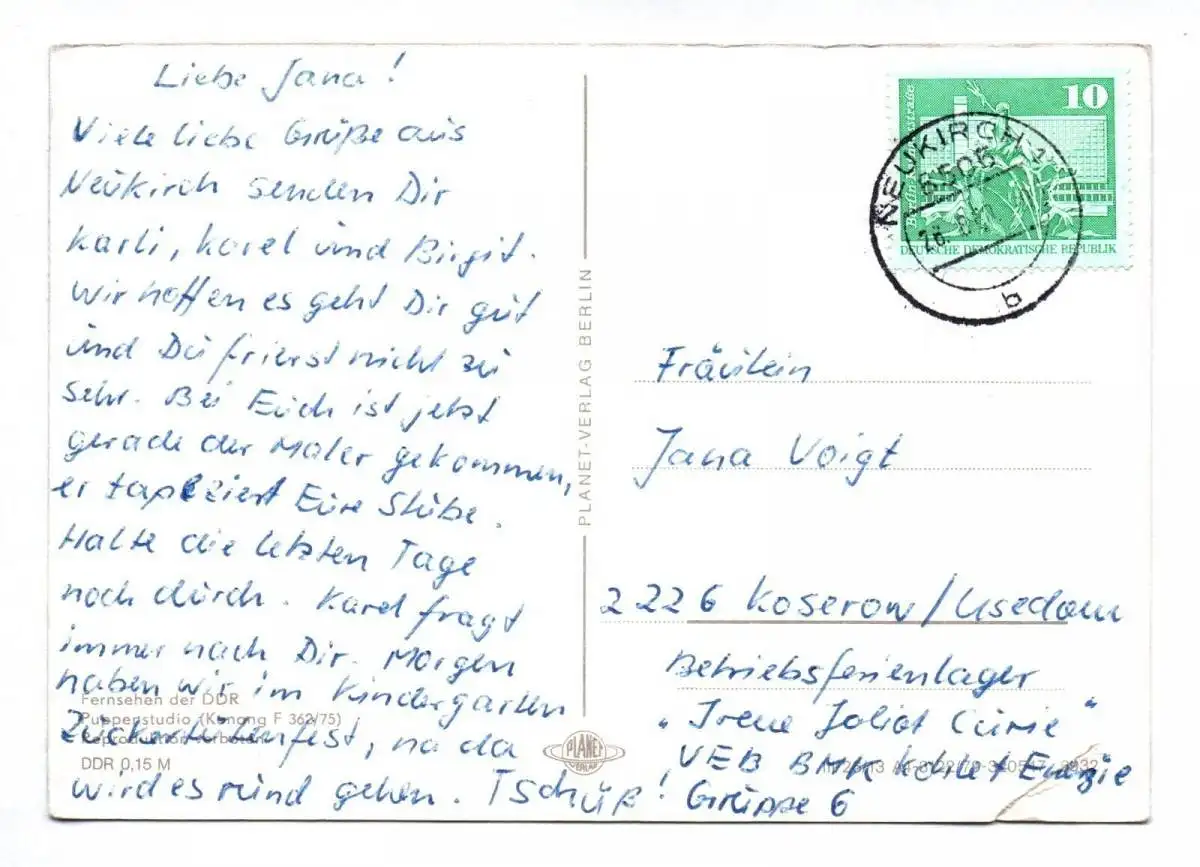 Liebe Jana!
Viele liebe Grüße aus
Neukirch senden Dir
Karli, Karel und Birgit.
Wir hoffen es geht Dir gut
und Du frierst nicht zu
sehr. Bei Euch ist jetzt
gerade der Maler gekommen,
er tapeziert Eure Stube.
Halte die letzten Tage
noch durch. Karel fragt
immer nach Dir. Morgen
haben wir im Kindergarten
Zuckertütenfest, na da
wird es rund gehen. Tschüß!
Fernsehen der DDR
Puppenstudio (K. F 362/75)
Reproduktion verboten
DDR 0,15 M
PLANET-VERLAG BERLIN
PLANET
VERLAG
10
Berlin
DEUTSCHE DEMOKRATISCHE REPUBLIK
NEUKIRCH 1
8506
b
Fräulein
Jana Voigt
2226 Koserow/Usedom
Betriebsferienlager
"Irene Joliot Curie"
VEB BMK Kohle + Energie
Gruppe 6